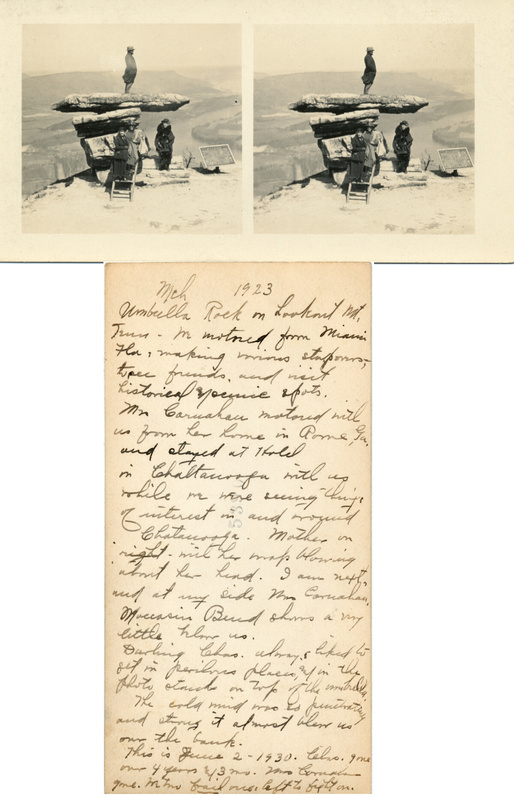 Mch 1923
Umbrella Rock on Lookout Mt.
Tenn - We motored from Miami
Fla, making various stopovers,
to see friends, and visit
historical & scenic spots.
Mrs Carnahan motored with
us from her home in Rome, Ga,
and stayed at Hotel
in Chattanooga with us
while we were seeing things
of interest in and around
Chatanooga. Mother on
right - with her wrap blowing
about her head. I am next,
and at my side Mrs Carnahan,
Moccasin Bend shows a very
little below us.
Darling Chas. always liked to
get in perilous places, & in the
photo stands on top of the umbrella
The cold wind was so penetrating
and strong it almost blew us
over the bank.
This is June 2 - 1930. Chas. gone
over 4 years & 3 mo. Mrs Carnahan
gone. left to fight on.